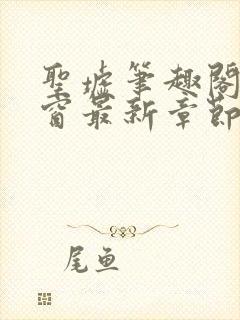 聖墟筆趣閣
窗最新章節
尾鱼